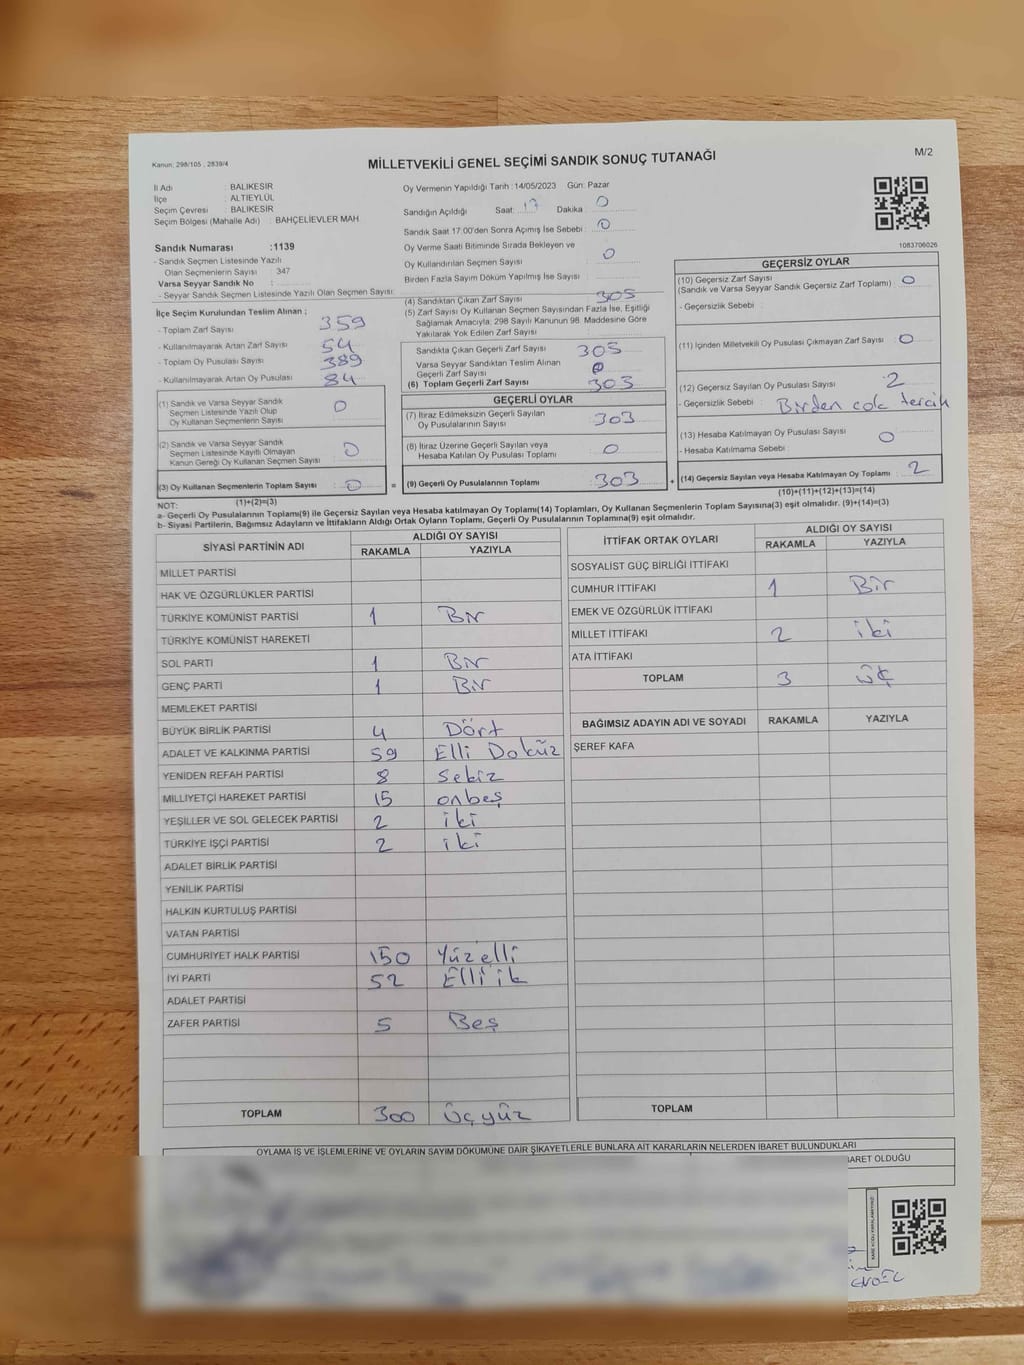 Kanun: 298/105 , 2839/4
MİLLETVEKİLİ GENEL SEÇİMİ SANDIK SONUÇ TUTANAĞI
M/2
İl Adı : BALIKESİR
İlçe : ALTIEYLÜL
Seçim Çevresi : BALIKESİR
Seçim Bölgesi (Mahalle Adı) : BAHÇELİEVLER MAH.
Sandık Numarası :1139
- Sandık Seçmen Listesinde Yazılı
Olan Seçmenlerin Sayısı : 347
Varsa Seyyar Sandık No :
- Seyyar Sandık Seçmen Listesinde Yazılı Olan Seçmen Sayısı:
İlçe Seçim Kurulundan Teslim Alınan ;
- Toplam Zarf Sayısı 359
- Kullanılmayarak Artan Zarf Sayısı 54
- Toplam Oy Pusulası Sayısı 389
- Kullanılmayarak Artan Oy Pusulası 84
(1) Sandık ve Varsa Seyyar Sandık
Seçmen Listesinde Yazılı Olup
Oy Kullanan Seçmenlerin Sayısı 0
(2) Sandık ve Varsa Seyyar Sandık
Seçmen Listesinde Kayıtlı Olmayan
Kanun Gereği Oy Kullanan Seçmen Sayısı 0
(3) Oy Kullanan Seçmenlerin Toplam Sayısı 0 =
(1)+(2)=(3)
Oy Vermenin Yapıldığı Tarih :14/05/2023 Gün: Pazar
Sandığın Açıldığı Saat: 17 Dakika 0
Sandık Saat 17:00'den Sonra Açımış İse Sebebi : 0
Oy Verme Saati Bitiminde Sırada Bekleyen ve
Oy Kullandırılan Seçmen Sayısı 0
Birden Fazla Sayım Döküm Yapılmış İse Sayısı :
(4) Sandıktan Çıkan Zarf Sayısı 305
(5) Zarf Sayısı Oy Kullanan Seçmen Sayısından Fazla İse, Eşitliği
Sağlamak Amacıyla, 298 Sayılı Kanunun 98. Maddesine Göre
Yakılarak Yok Edilen Zarf Sayısı :
Sandıkta Çıkan Geçerli Zarf Sayısı 305
Varsa Seyyar Sandıktan Teslim Alınan
Geçerli Zarf Sayısı 0
(6) Toplam Geçerli Zarf Sayısı 303
GEÇERLİ OYLAR
(7) İtiraz Edilmeksizin Geçerli Sayılan
Oy Pusulalarının Sayısı : 303
(8) İtiraz Üzerine Geçerli Sayılan veya
Hesaba Katılan Oy Pusulası Toplamı : 0
(9) Geçerli Oy Pusulalarının Toplamı : 303 +
1083706026
GEÇERSİZ OYLAR
(10) Geçersiz Zarf Sayısı
(Sandık ve Varsa Seyyar Sandık Geçersiz Zarf Toplamı) : 0
- Geçersizlik Sebebi :
(11) İçinden Milletvekili Oy Pusulası Çıkmayan Zarf Sayısı : 0
(12) Geçersiz Sayılan Oy Pusulası Sayısı : 2
- Geçersizlik Sebebi : Birden çok tercih
(13) Hesaba Katılmayan Oy Pusulası Sayısı : 0
- Hesaba Katılmama Sebebi :
(14) Geçersiz Sayılan veya Hesaba Katılmayan Oy Toplamı : 2
(10)+(11)+(12)+(13)=(14)
NOT:
a- Geçerli Oy Pusulalarının Toplamı(9) ile Geçersiz Sayılan veya Hesaba katılmayan Oy Toplamı(14) Toplamları, Oy Kullanan Seçmenlerin Toplam Sayısına(3) eşit olmalıdır. (9)+(14)=(3)
b- Siyasi Partilerin, Bağımsız Adayların ve İttifakların Aldığı Ortak Oyların Toplamı, Geçerli Oy Pusulalarının Toplamına(9) eşit olmalıdır.
SİYASİ PARTİNİN ADI ALDIĞI OY SAYISI
RAKAMLA YAZIYLA
MİLLET PARTİSİ
HAK VE ÖZGÜRLÜKLER PARTİSİ
TÜRKİYE KOMÜNİST PARTİSİ 1 Bir
TÜRKİYE KOMÜNİST HAREKETİ
SOL PARTİ 1 Bir
GENÇ PARTİ 1 Bir
MEMLEKET PARTİSİ
BÜYÜK BİRLİK PARTİSİ 4 Dört
ADALET VE KALKINMA PARTİSİ 59 Elli Dokuz
YENİDEN REFAH PARTİSİ 8 Sekiz
MİLLİYETÇİ HAREKET PARTİSİ 15 onbeş
YEŞİLLER VE SOL GELECEK PARTİSİ 2 iki
TÜRKİYE İŞÇİ PARTİSİ 2 iki
ADALET BİRLİK PARTİSİ
YENİLİK PARTİSİ
HALKIN KURTULUŞ PARTİSİ
VATAN PARTİSİ
CUMHURİYET HALK PARTİSİ 150 Yüzelli
İYİ PARTİ 52 Elli ik
ADALET PARTİSİ
ZAFER PARTİSİ 5 Beş
TOPLAM 300 üçyüz
İTTİFAK ORTAK OYLARI ALDIĞI OY SAYISI
RAKAMLA YAZIYLA
SOSYALİST GÜÇ BİRLİĞİ İTTİFAKI
CUMHUR İTTİFAKI 1 Bir
EMEK VE ÖZGÜRLÜK İTTİFAKI
MİLLET İTTİFAKI 2 iki
ATA İTTİFAKI
TOPLAM 3 üç
BAĞIMSIZ ADAYIN ADI VE SOYADI RAKAMLA YAZIYLA
ŞEREF KAFA
TOPLAM
OYLAMA İŞ VE İŞLEMLERİNE VE OYLARIN SAYIM DÖKÜMÜNE DAİR ŞİKAYETLERLE BUNLARA AİT KARARLARIN NELERDEN İBARET BULUNDUKLARI
BARET OLDUĞU